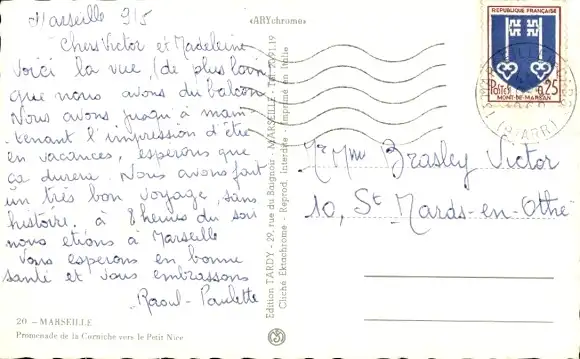 Marseille 9/5
Chers Victor et Madeleine
Voici la vue, (de plus loin
que nous avons du balcon
Nous avons jusqu'à main
tenant l'impression d'être
en vacances, esperons que
ça durera. Nous avons fait
un très bon voyage, sans
histoire. à 8 heures du soir
nous etions à Marseille
Vous esperons en bonne
santé et vous embrassons
Raoul - Paulette
20 - MARSEILLE
Promenade de la Corniche vers le Petit Nice
«ARYchrome»
Edition TARDY - 29, rue du Baignoir - MARSEILLE - Tél. 20.91.19
Cliché Ektachrome - Reprod. Interdite - Imprimé en Italie
REPUBLIQUE FRANÇAISE
Postes 0,25
MONT-DE-MARSAN
MARSEILLE
Mr Mme Brasley Victor
10, St Mards-en-Othe